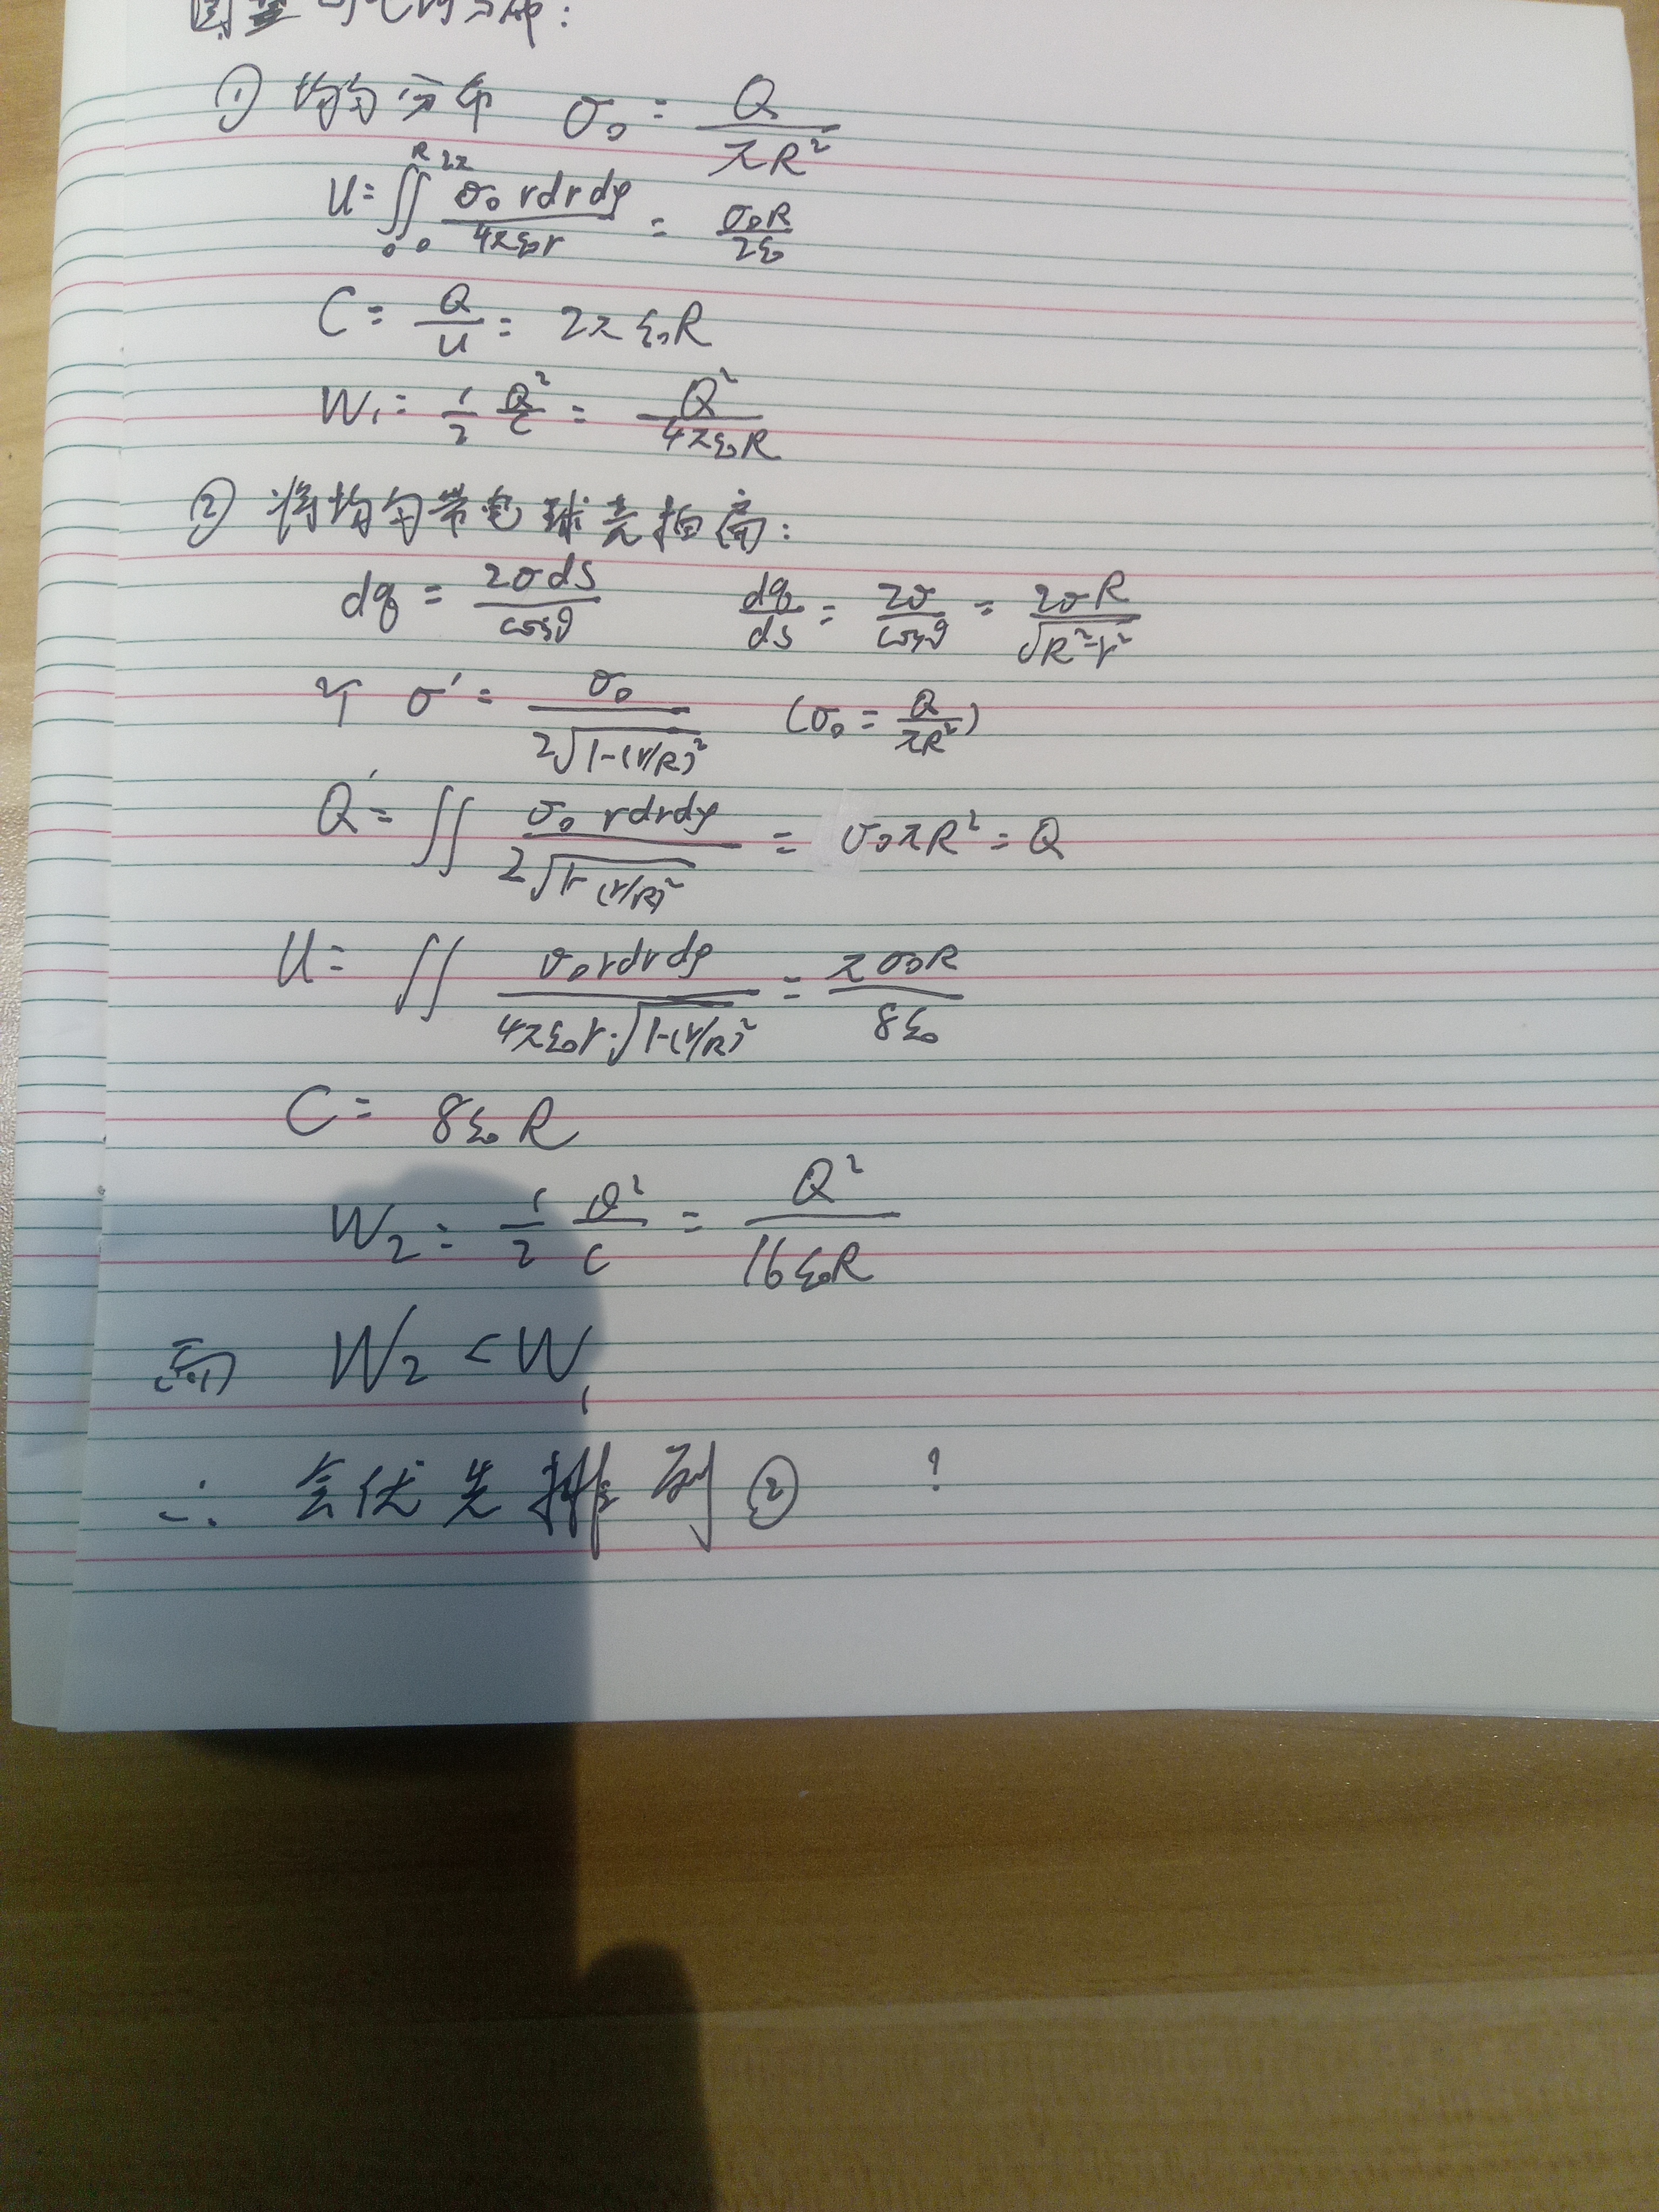 ① 均匀分布 σ₀ = Q/(πR²)
U = ∫₀^R ∫₀^2π σ₀ r dr dφ / (4πε₀r) = σ₀R/(2ε₀)
C = Q/U = 2πε₀R
W₁ = 1/2 Q²/C = Q²/(4πε₀R)
② 将均匀带电球壳拍扁:
dq = 2σds/cosθ dq/ds = 2σ/cosθ = 2σR/√(R²-r²)
σ' = σ₀/(2√(1-(r/R)²)) (σ₀ = Q/(πR²))
Q' = ∬ σ₀ r dr dφ / (2√(1-(r/R)²)) = σ₀πR² = Q
U = ∬ σ₀ r dr dφ / (4πε₀r·√(1-(r/R)²)) = πσ₀R/(8ε₀)
C = 8ε₀R
W₂ = 1/2 Q²/C = Q²/(16ε₀R)
而 W₂ < W₁
∴ 会优先排列② ?